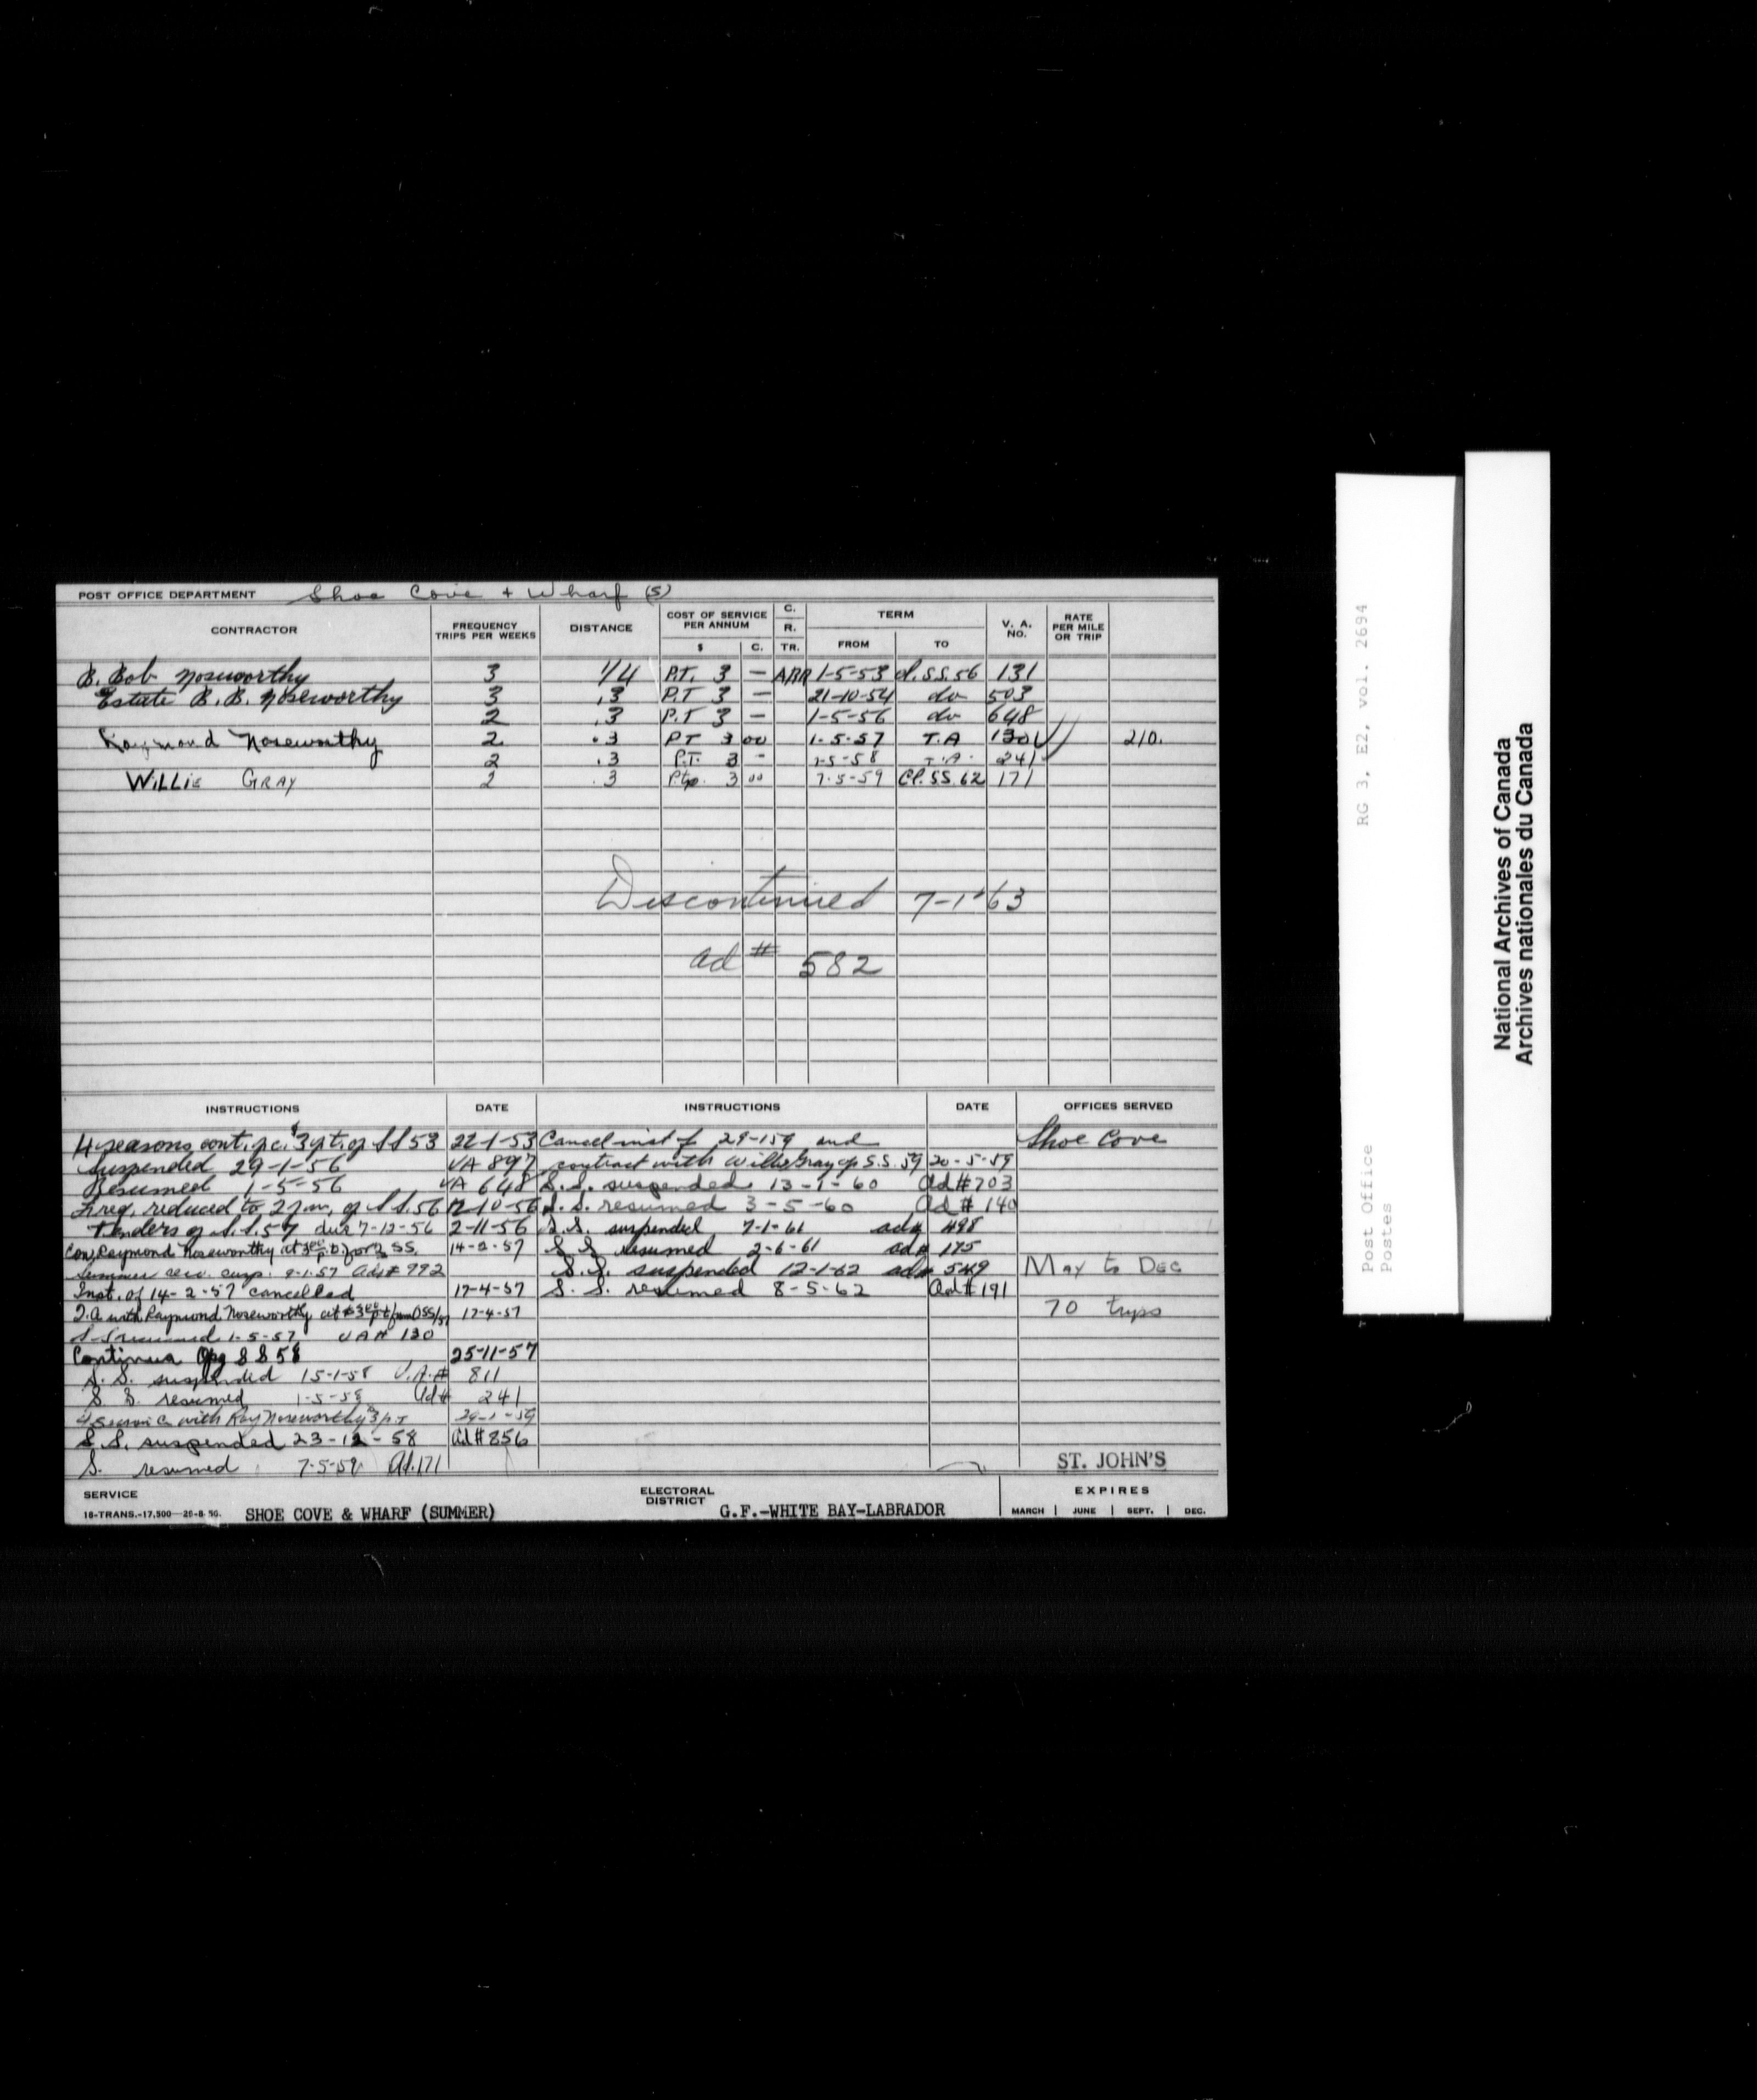 POST OFFICE DEPARTMENT Shoe Cove + Wharf (S)
CONTRACTOR FREQUENCY TRIPS PER WEEKS DISTANCE COST OF SERVICE PER ANNUM $ C. C. R. TR. TERM FROM TO V. A. NO. RATE PER MILE OR TRIP
B. Bob Noseworthy 3 1/4 P.T. 3 — ARR 1-5-53 cl. S.S. 56 131
Estate B. B. Noseworthy 3 .3 P.T 3 — 21-10-54 do 503
2 .3 P.T 3 — 1-5-56 do 648
Raymond Noseworthy 2 .3 PT 3 00 1-5-57 T.A 130 210.
2 .3 P.T. 3 - 1-5-58 T.A. 241
WILLIE GRAY 2 .3 P.tp. 3 00 7-5-59 Cl. SS. 62 171
Discontinued 7-1-63
ad # 582
INSTRUCTIONS DATE INSTRUCTIONS DATE OFFICES SERVED
4 seasons cont. $3 p.t. S S 53 22-1-53 Cancel inst of 29-1-59 and Shoe Cove
Suspended 29-1-56 VA 897 contract with Willie Gray op S.S. 59 20-5-59
Resumed 1-5-56 VA 648 S.S. suspended 13-1-60 Ad # 703
Freq. reduced to 2 S.S. 56 12-10-56 S.S. resumed 3-5-60 Ad # 140
Tenders S.S. 57 due 7-12-56 2-11-56 S.S. suspended 7-1-61 ad# 498
Con. Raymond Noseworthy at 3.00 p.t. for 3 SS. 14-2-57 S S resumed 2-6-61 ad# 175
Summer serv. susp. 9-1-57 Ad # 992 S.S. suspended 12-1-62 ad# 549 May to Dec
Inst. of 14-2-57 cancelled 17-4-57 S. S. resumed 8-5-62 Ad # 191
T.A with Raymond Noseworthy at $3.00 p t SS/57 17-4-57 70 trips
S S resumed 1-5-57 V A # 130
Continue Opg S S 58 25-11-57
S. S. suspended 15-1-58 V.A.# 811
S S. resumed 1-5-58 Ad# 241
4 Season C with Ray Noseworthy 3 p.t 29-1-59
S.S. suspended 23-12-58 Ad # 856
S. resumed 7-5-59 Ad. 171 ST. JOHN'S
SERVICE ELECTORAL DISTRICT EXPIRES
18-TRANS.-17,500—26-8-50. SHOE COVE & WHARF (SUMMER) G.F.-WHITE BAY-LABRADOR MARCH JUNE SEPT. DEC.
Post Office RG 3, E2, vol. 2694
Postes
National Archives of Canada
Archives nationales du Canada